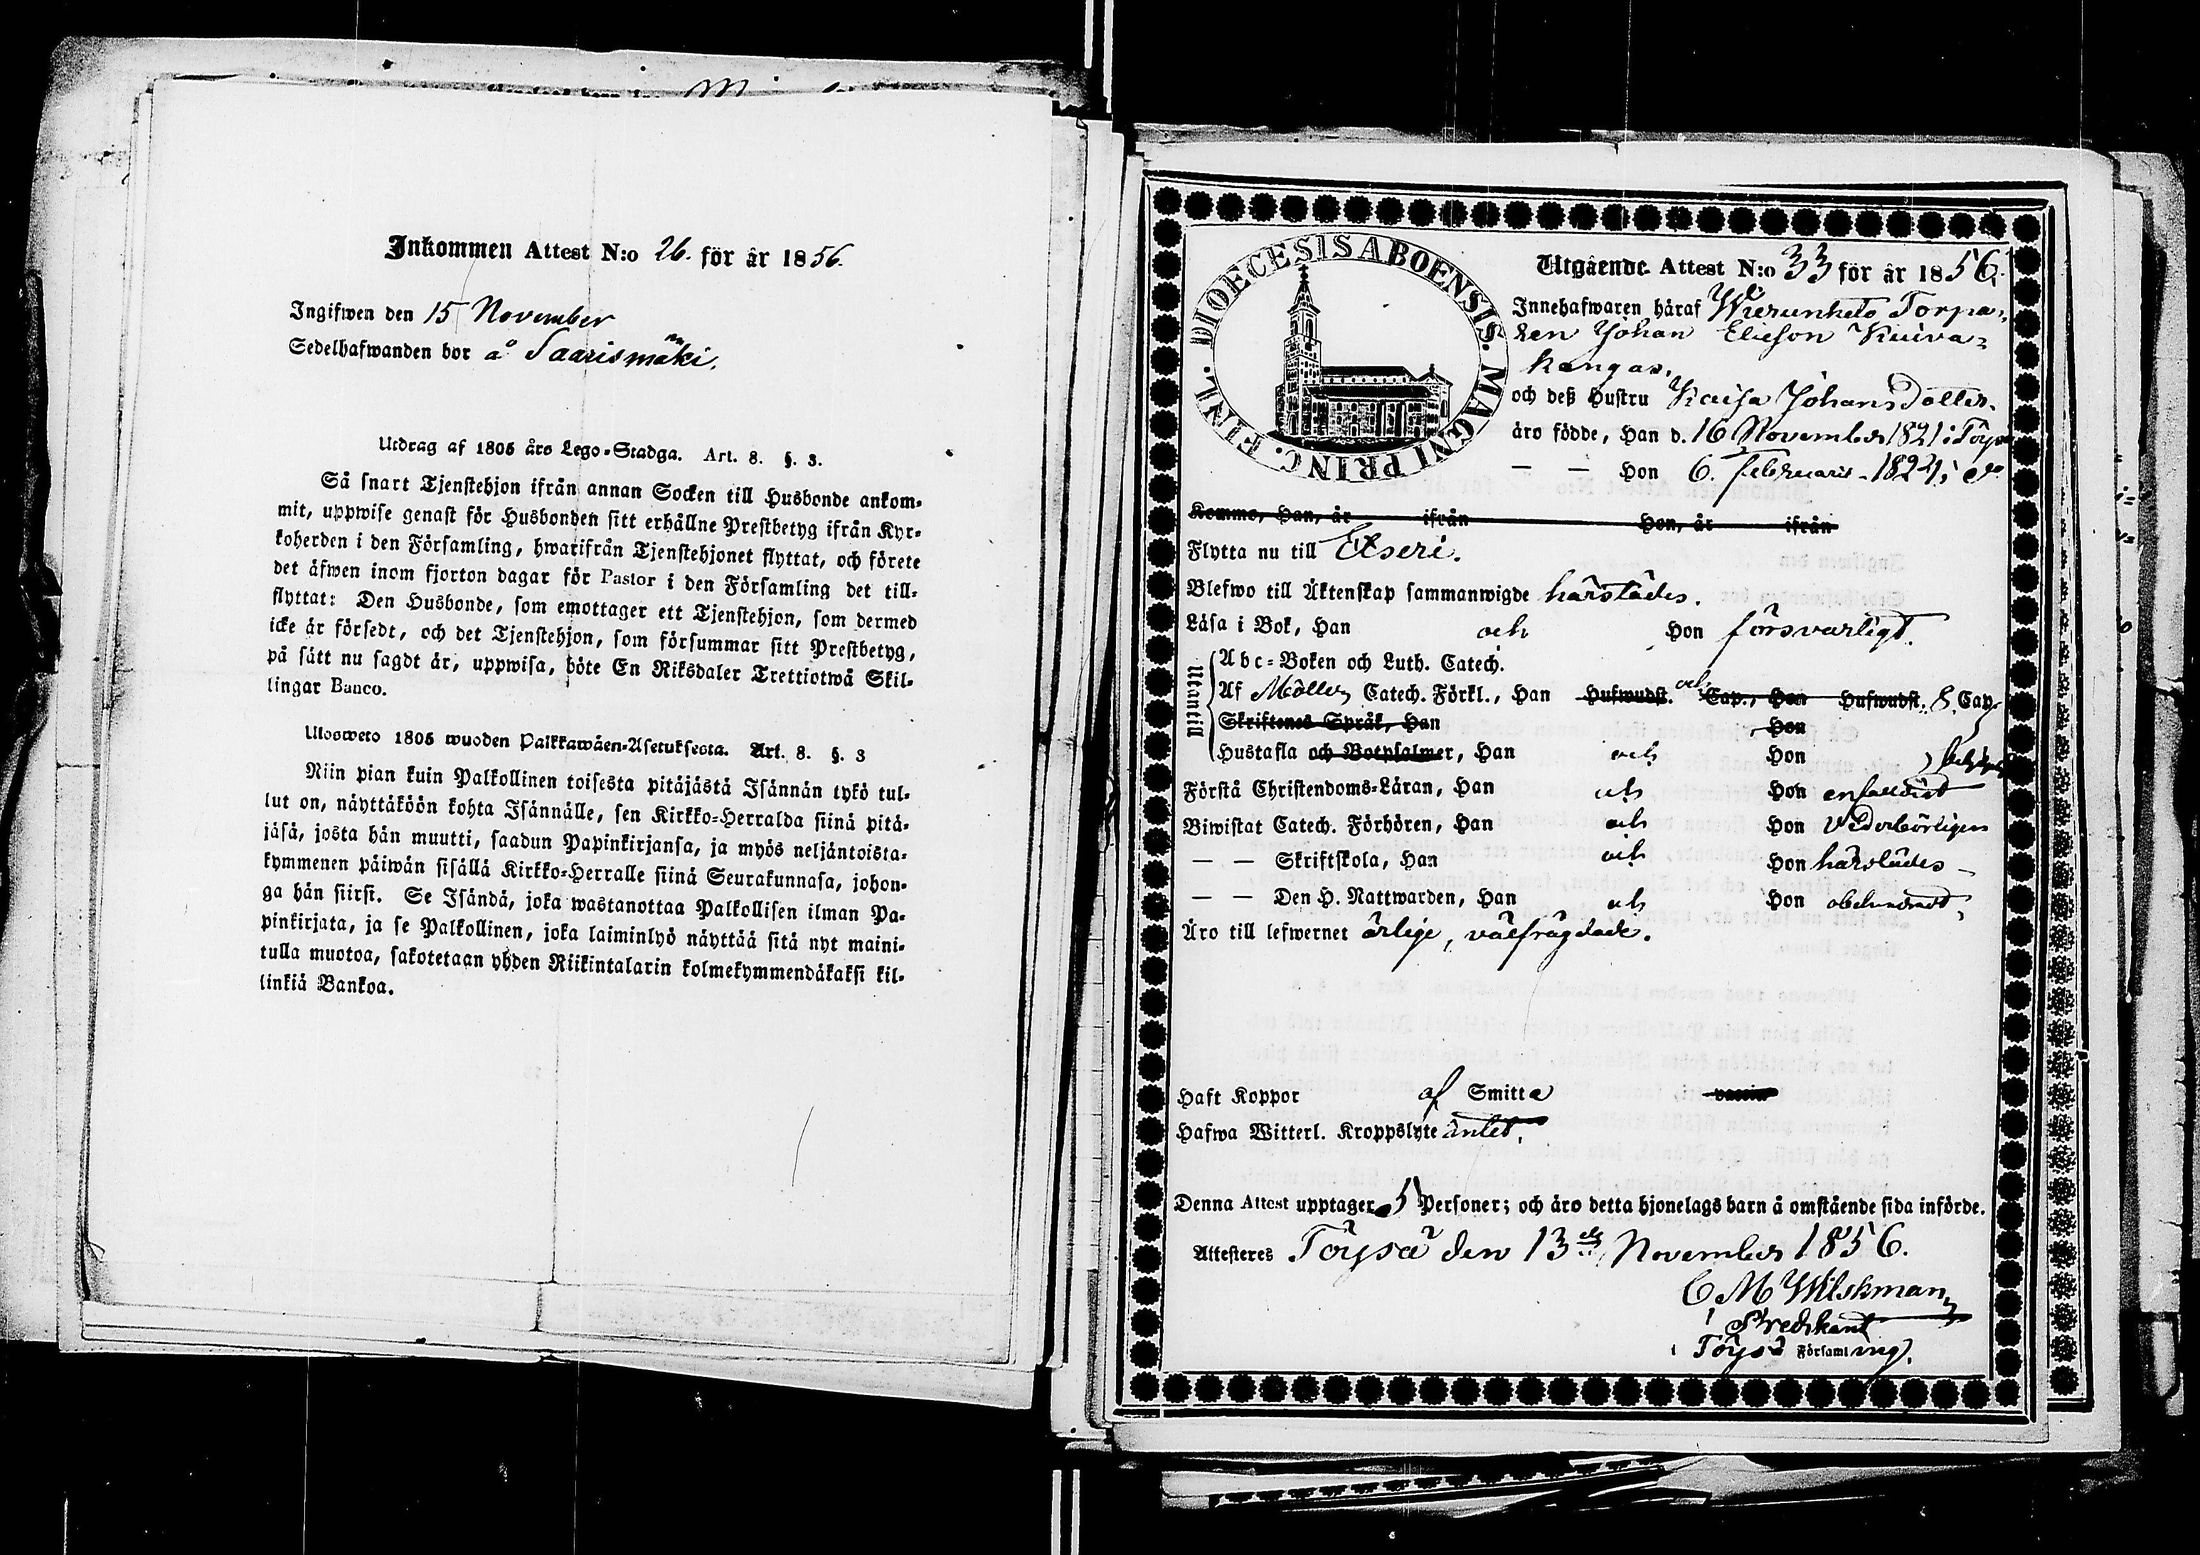 Inkommen Attest N:o 26. för år 1856.
Ingifwen den 15 November
Sedelhafwanden bor å Saarismäki.
Utdrag af 1805 års Lego-Stadga. Art. 8. §. 3.
Så snart Tjenstehjon ifrån annan Socken till Husbonde ankom-
mit, uppwise genast för Husbonden sitt erhållne Prestbetyg ifrån Kyr-
koherden i den Församling, hwarifrån Tjenstehjonet flyttat, och förete
det äfwen inom fjorton dagar för Pastor i den Församling det till-
flyttat: Den Husbonde, som emottager ett Tjenstehjon, som dermed
icke är försedt, och det Tjenstehjon, som försummar sitt Prestbetyg,
på sätt nu sagdt är, uppwisa, böte En Riksdaler Trettiotwå Skil-
lingar Banco.
Ulosweto 1805 wuoden Palkkawäen-Asetuksesta. Art. 8. §. 3
Niin pian kuin Palkollinen toisesta pitäjästä Isännän tykö tul-
lut on, näyttäköön kohta Isännälle, sen Kirkko-Herralda siinä pitä-
jäsä, josta hän muutti, saadun Papinkirjansa, ja myös neljäntoista-
kymmenen päiwän sisällä Kirkko-Herralle siinä Seurakunnasa, johon-
ga hän siirsi. Se Isändä, joka wastanottaa Palkollisen ilman Pa-
pinkirjata, ja se Palkollinen, joka laiminlyö näyttää sitä nyt maini-
tulla muotoa, sakotetaan yhden Riikintalarin kolmekymmendäkaksi kil-
linkiä Bankoa.
DIOECESIS ABOENSIS. MAGNI PRINC. FINL.
Utgående Attest N:o 33 för år 1856.
Innehafwaren häraf Wierunheto Torpa-
ren Johan Eliesson Kuiva-
kangas.
och deß Hustru Kaisa Johansdotter.
äro födde, Han d. 16 November 1821 i Töysä
— — Hon 6. Februarii 1824, do
Komme, Han, år ifrån Hon, år ifrån
Flytta nu till Etseri.
Blefwo till Äktenskap sammanwigde härstädes.
Läsa i Bok, Han och Hon försvarligt.
Utantill
Abc-Boken och Luth. Catech.
Af Möllers Catech. Förkl., Han Hufwudst. och Cap., Hon Hufwudst. 8. Cap.
Skriftenes Språk, Han Hon
Hustafla och Botpsalmer, Han och Hon
Förstå Christendoms-Läran, Han och Hon enfaldigt
Biwistat Catech. Förhören, Han och Hon Vederbörligen
— — Skriftskola, Han och Hon härstädes
— — Den H. Nattwarden, Han och Hon obehindradt,
Äro till lefwernet ärlige, välfrägdade.
Haft Koppor af Smitta vaccin
Hafwa Witterl. Kroppslyte intet.
Denna Attest upptager 5 Personer; och äro detta hjonelags barn å omstående sida införde.
Attesteres Töysä den 13de November 1856.
C M Wilskman
Predikant
i Töysä Församling.